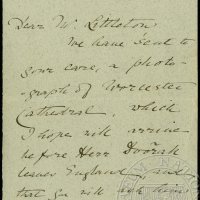 Dear Mr Littleton
We have sent to
your care, a photo-
ograph of Worcester
Cathedral, which
I hope will arrive
before Herr Dvořák
leaves England, and
that you will